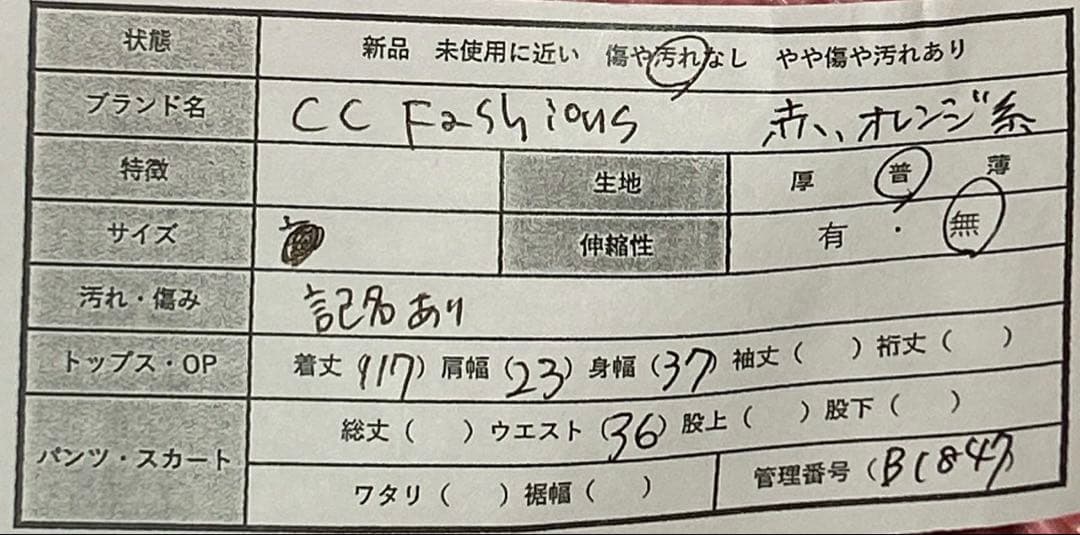 状態 新品 未使用に近い 傷や汚れなし やや傷や汚れあり
ブランド名 CC Fashions 赤、オレンジ系
特徴 生地 厚 普 薄
サイズ 伸縮性 有 ・ 無
汚れ・傷み 記名あり
トップス・OP 着丈(117) 肩幅(23) 身幅(37) 袖丈( ) 裄丈( )
パンツ・スカート 総丈( ) ウエスト(36) 股上( ) 股下( )
ワタリ( ) 裾幅( ) 管理番号(B1847)